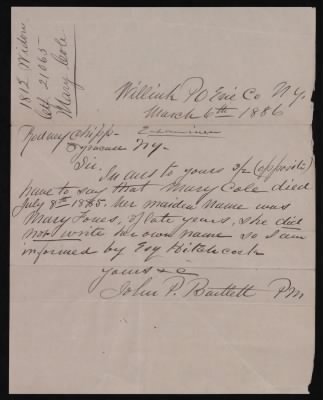 1812 Widow
Ctf 21065
Mary Cole
Willink PO Erie Co N.Y.
March 6th 1886
Rodney Shipp - Examiner
Syracuse N.Y.
Sir,
In ans to yours 3/2 (opposite)
have to say that Mary Cole died
July 8th 1885. her maiden name was
Mary Jones, of late years, she did
not write her own name so I am
informed by Esq Hitchcock
yours &c
John P. Bartlett PM